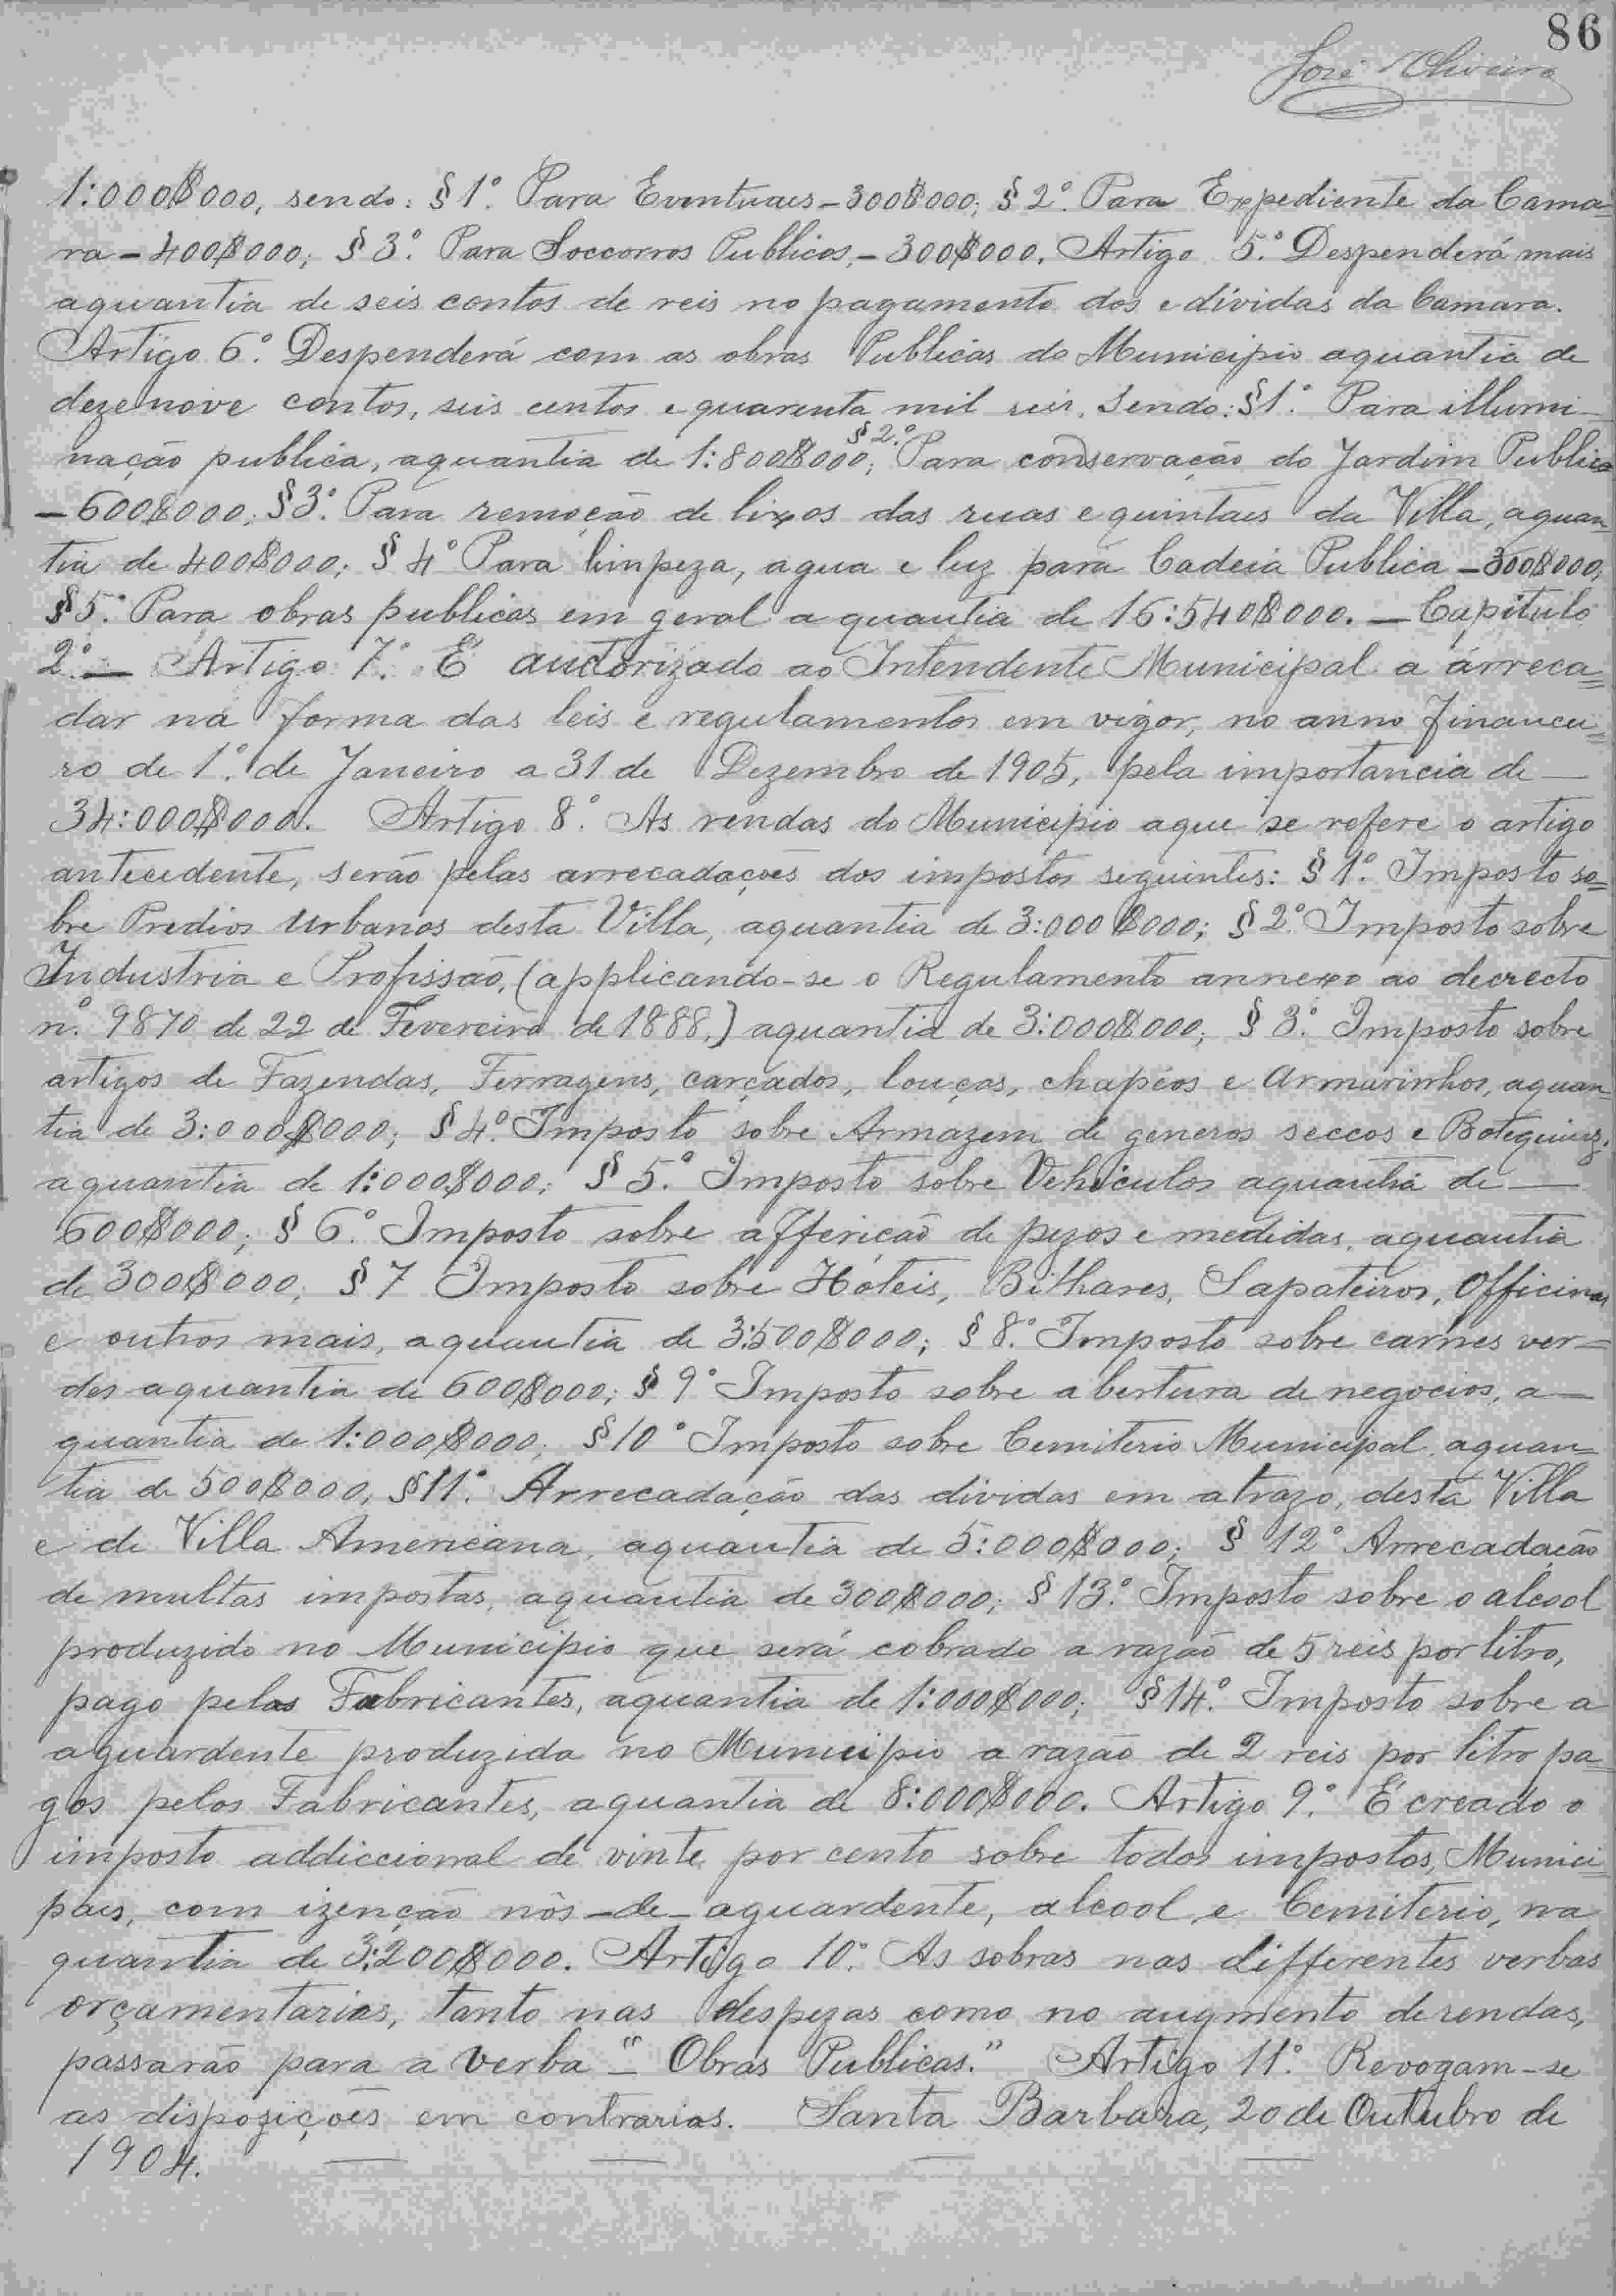 86
José Oliveira
1:000$000, sendo: § 1º. Para Eventuaes - 300$000; § 2º. Para Expediente da Cama=
ra - 400$000; § 3º. Para Soccorros Publicos, - 300$000. Artigo 5º. Despenderá mais
aquantia de seis contos de reis no pagamento dos e dividas da Camara.
Artigo 6º. Despenderá com as obras Publicas do Municipio aquantia de
dezenove contos, seis centos e quarenta mil reis. Sendo: § 1º. Para illumi-
nação publica, aquantia de 1:800$000; § 2.º Para conservação do Jardim Publico
- 600$000; § 3º. Para remoção de lixos das ruas e quintaes da Villa, aquan=
tia de 400$000; § 4º Para limpeza, agua e luz para Cadeia Publica - 300$000;
§ 5º. Para obras publicas em geral a quantia de 16:540$000. — Capitulo
2º. — Artigo 7º. É autorizado ao Intendente Municipal a arreca=
dar na forma das leis e regulamentos em vigor, no anno financei=
ro de 1º. de Janeiro a 31 de Dezembro de 1905, pela importancia de —
34:000$000. Artigo 8º. As rendas do Municipio aque se refere o artigo
antecedente, serão pelas arrecadações dos impostos seguintes: § 1º. Imposto so=
bre Predios Urbanos desta Villa, aquantia de 3:000$000; § 2º. Imposto sobre
Industria e Profissão, (applicando-se o Regulamento annexo ao decrecto
nº. 9870 de 22 de Fevereiro de 1888,) aquantia de 3:000$000; § 3º. Imposto sobre
artigos de Fazendas, Ferragens, carçados, louças, chapéos e Armarinhos, aquan=
tia de 3:000$000; § 4º. Imposto sobre Armazem de generos seccos e Botequins,
aquantia de 1:000$000; § 5º. Imposto sobre Vehiculos aquantia de —
600$000; § 6º. Imposto sobre affericão de pezos e medidas, aquantia
de 300$000; § 7 Imposto sobre Hóteis, Bilhares, Sapateiros, Officinas
e outros mais, aquantia de 3:500$000; § 8º. Imposto sobre carnes ver=
des aquantia de 600$000; § 9º Imposto sobre abertura de negocios, a—
quantia de 1:000$000; § 10º Imposto sobre Cemiterio Municipal, aquan=
tia de 500$000; § 11º. Arrecadação das dividas em atrazo, desta Villa
e de Villa Americana, aquantia de 5:000$000; § 12º Arrecadação
de multas impostas, aquantia de 300$000; § 13º. Imposto sobre o alcool
produzido no Municipio que será cobrado a razão de 5 reis por litro,
pago pelos Fabricantes, aquantia de 1:000$000; § 14º. Imposto sobre a
aguardente produzida no Municipio a razão de 2 reis por litro pa=
gos pelos Fabricantes, aquantia de 8:000$000. Artigo 9º. É creado o
imposto addiccional de vinte por cento sobre todos impostos, Munici=
paes, com izenção nôs - de - aguardente, alcool e Cemiterio, na
quantia de 3:200$000. Artigo 10º. As sobras nas differentes verbas
orçamentarias, tanto nas despezas como no augmento de rendas,
passarão para a verba "- Obras Publicas." Artigo 11º. Revogam-se
as dispozições em contrarias. Santa Barbara, 20 de Outubro de
1904. — — — —